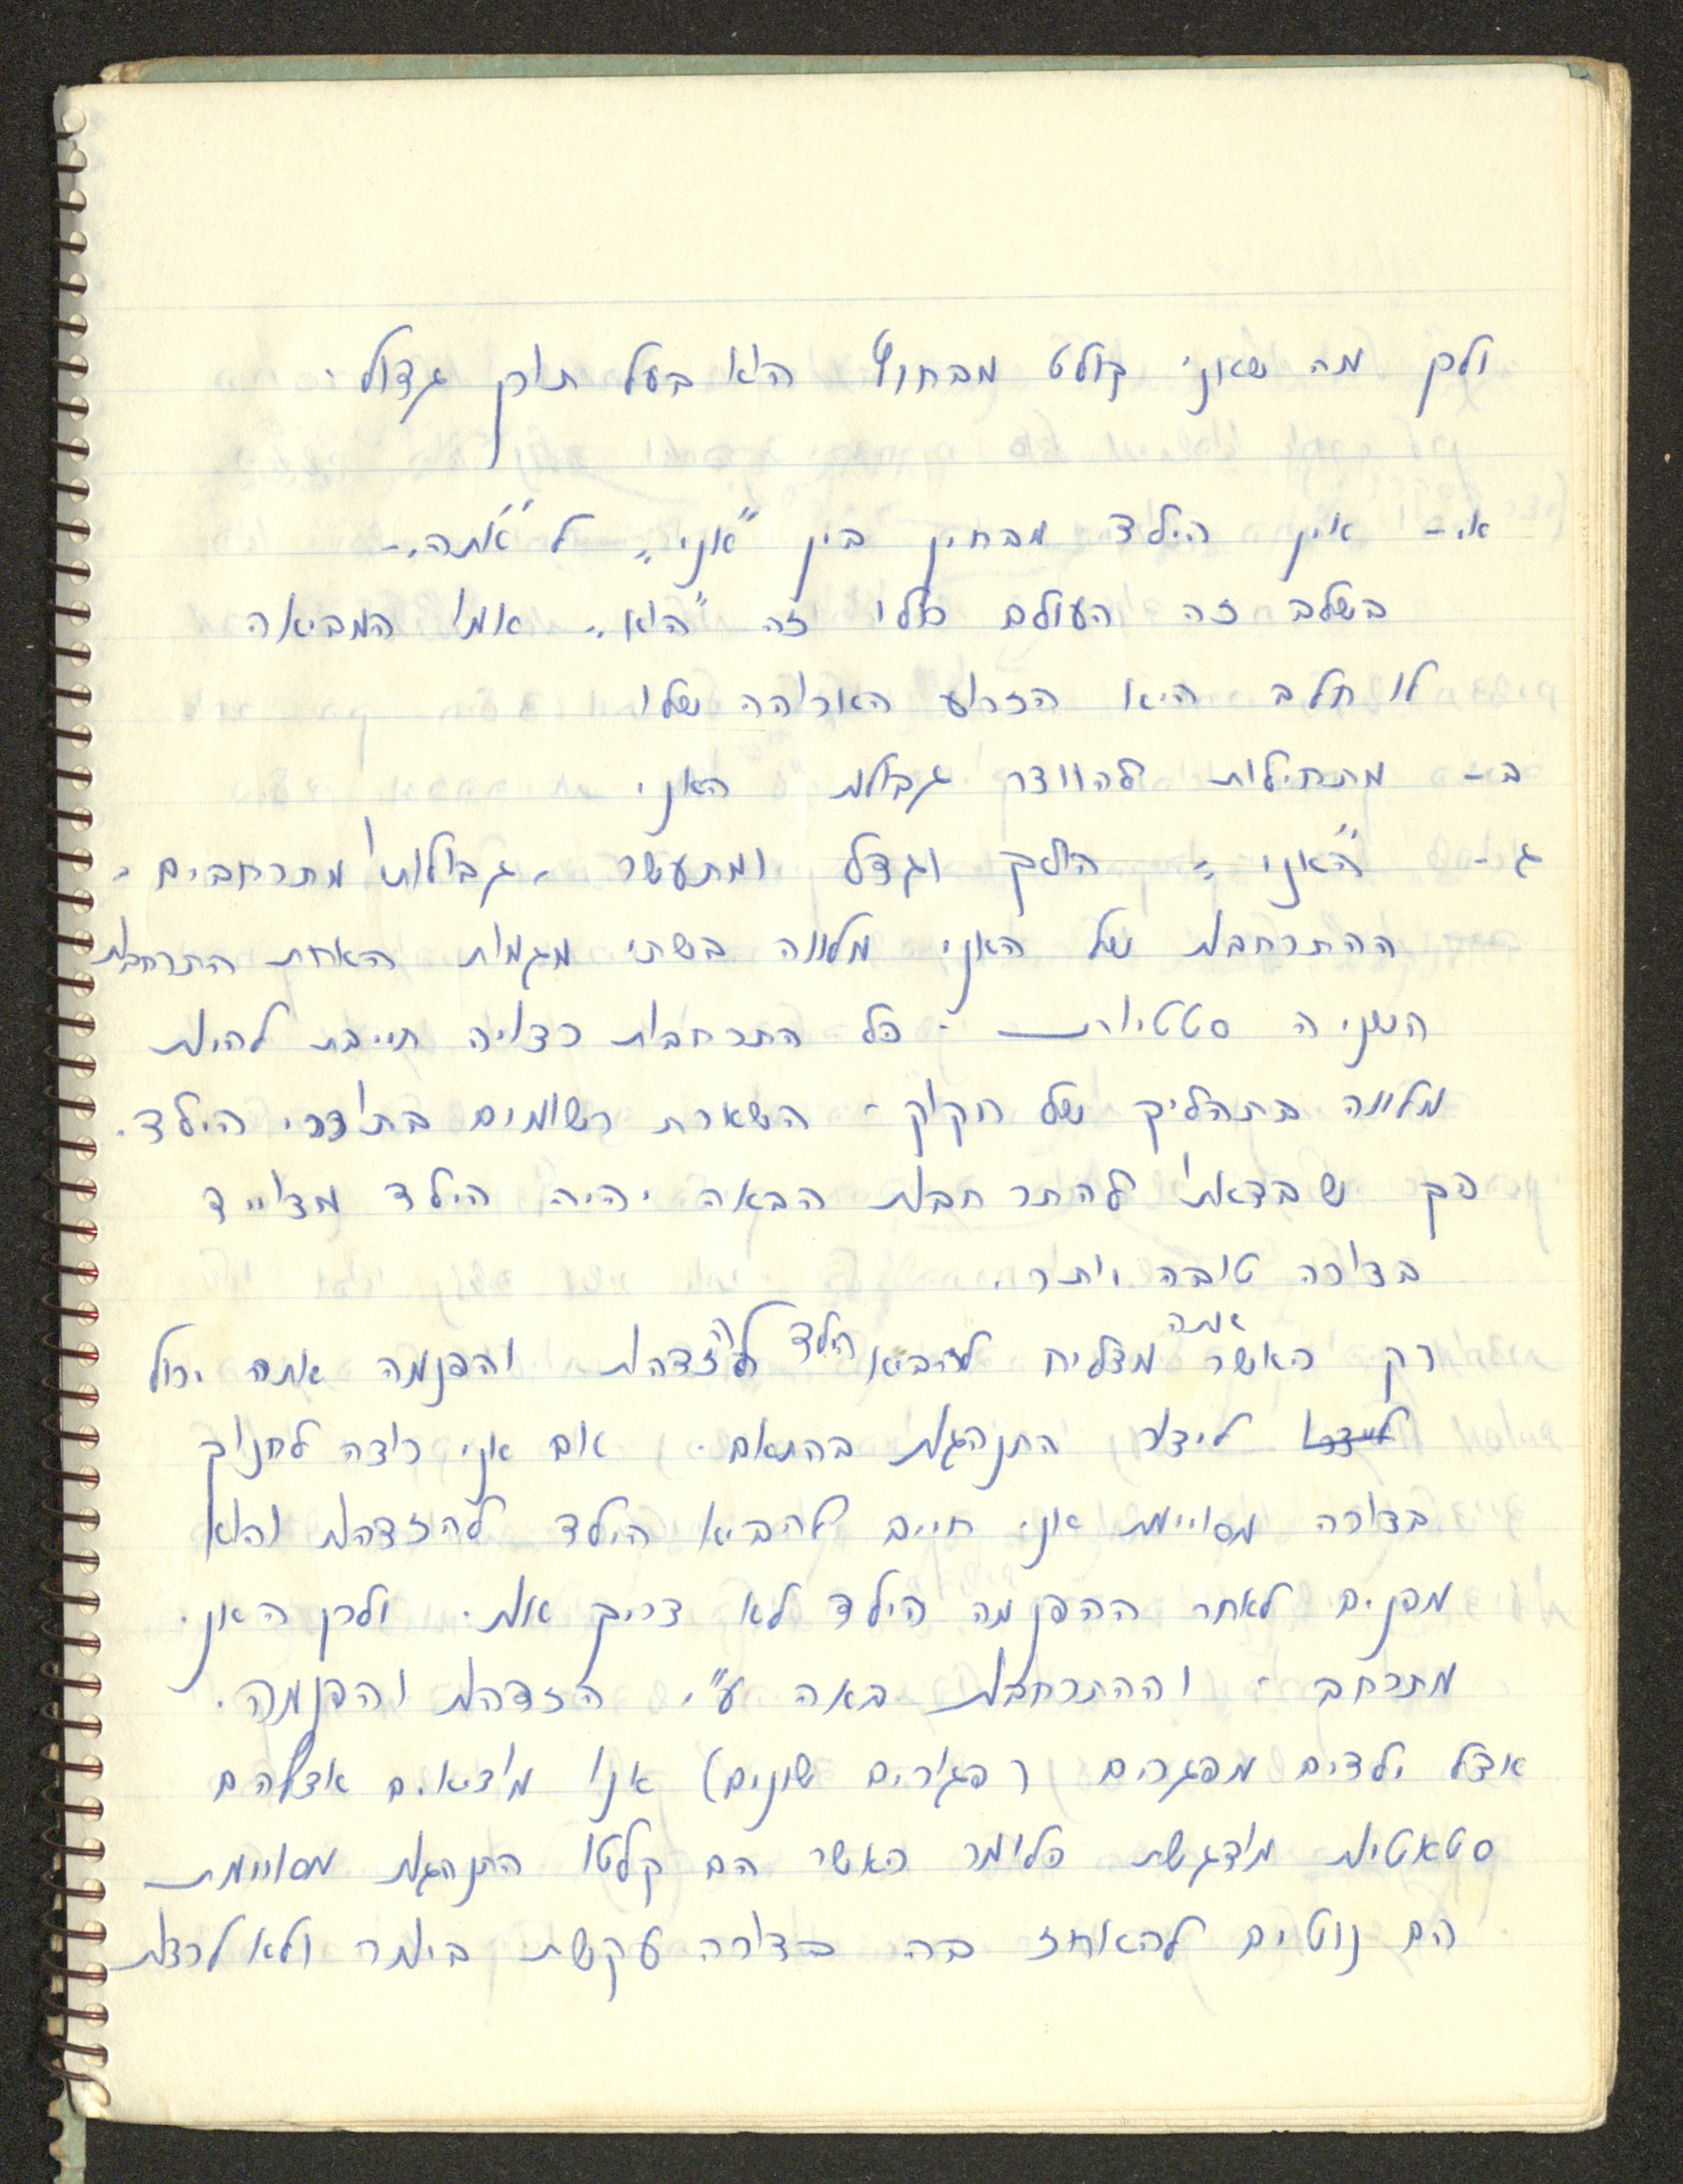 ולכן מה שאני קולט מבחוץ הוא בעל תוקן גדול.
א.- אין הילד מבחין בין "אני" ל"אתה".-
בשלב זה העולם כולו זה "הוא". אמו המביאה
לו חלב היא הזרוע הארוכה שלו
ב- מתחילות להווצר גבולות האני
ג- "האני" הולך וגדל ומתעשר, גבולותיו מתרחבים.
ההתרחבות של האני מלווה בשתי מגמות האחת התרחבות
השניה סטטיות - כל התרחבות רצויה חייבת להיות
מלווה בתהליך של חקוק - השארת רשומים בתוככי הילד.
כך שבצאתו להתרחבות הבאה יהיה הילד מצוייד
בצורה טובה יותר.
רק כאשר אתה מצליח להביא הילד להזדהות והפנמה אתה יכול
ליצור התנהגות בהתאם. אם אני רוצה לחנוך
בצורה מסויימת אני חייב להביא הילד להזדהות והוא
מפנים לאחר ההפנמה הילד לא צריך אותי. ולכן האני
מתרחב - וההתרחבות באה ע"י הזדהות והפנמה.
אצל ילדים מפגרים (פגורים שונים) אנו מוצאים אצלהם
סטאטיות מודגשת כלומר כאשר הם קלטו התנהגות מסויימת
הם נוטים להאוחז בה בצורה עקשת ביותר ולא לרצות